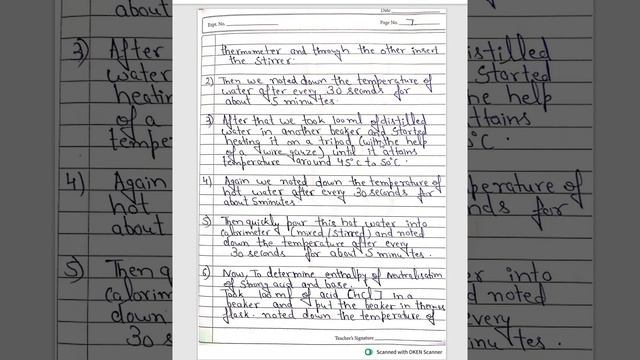 Date
Expt. No.
Page No. 7
thermometer and through the other insert
the stirrer.
2) Then we noted down the temperature of
water after every 30 seconds for
about 5 minutes.
3) After that we took 100ml of distilled
water in another beaker and started
heating it on a tripod (with the help
of a wire gauze) until it attains
temperature around 45°C to 50°C.
4) Again we noted down the temperature of
hot water after every 30 seconds for
about 5 minutes
5) Then quickly pour this hot water into
calorimeter (mixed/stirred) and noted
down the temperature after every
30 seconds for about 5 minutes.
6) Now, To determine enthalpy of Neutralisation
of strong acid and base.
Took 100ml of acid [HCl] in a
beaker and put the beaker in thermos
flask. noted down the temperature of
Teacher's Signature
Scanned with OKEN Scanner